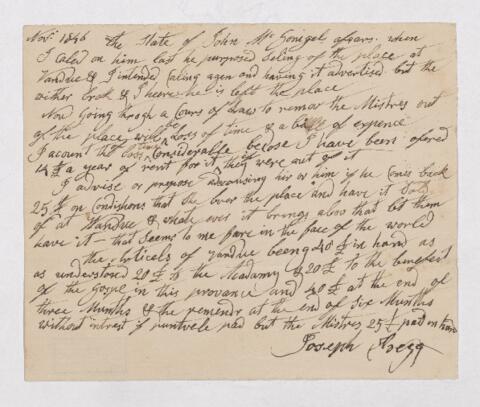 Novr 1846 the State of John Mc Gonigel afears. when
I Caled on him Last he purposed Seling of the place at
Vandue & I intended Caling agen and having it advertised but the
wither Brok & I heere he is left the place
Now Going throgh a Cours of Law to remov the Mistres out
of the place will be Loss of time & a bill of expence
I acount the Loss time Considerable becose I have been ofered
14 £ a year of rent for it, they were out of it
I advise or propose advansing hir or him if he Coms back
25 £ on Condishons that She over the place and have it Sold
of at Vandue & what ever it brings abov that let them
have it – that Seems to me fare in the face of the world
the Articels of Vandue being 40 £ in hand as
as understood 20 £ to the Madamy & 20 £ to the benefeit
of the Gospel in this provance and 40 £ at the end of
three Munths & the remendr at the end of Six Munths
without intrest if puntvele pad but the Mistres 25 £ pad in hand
Joseph